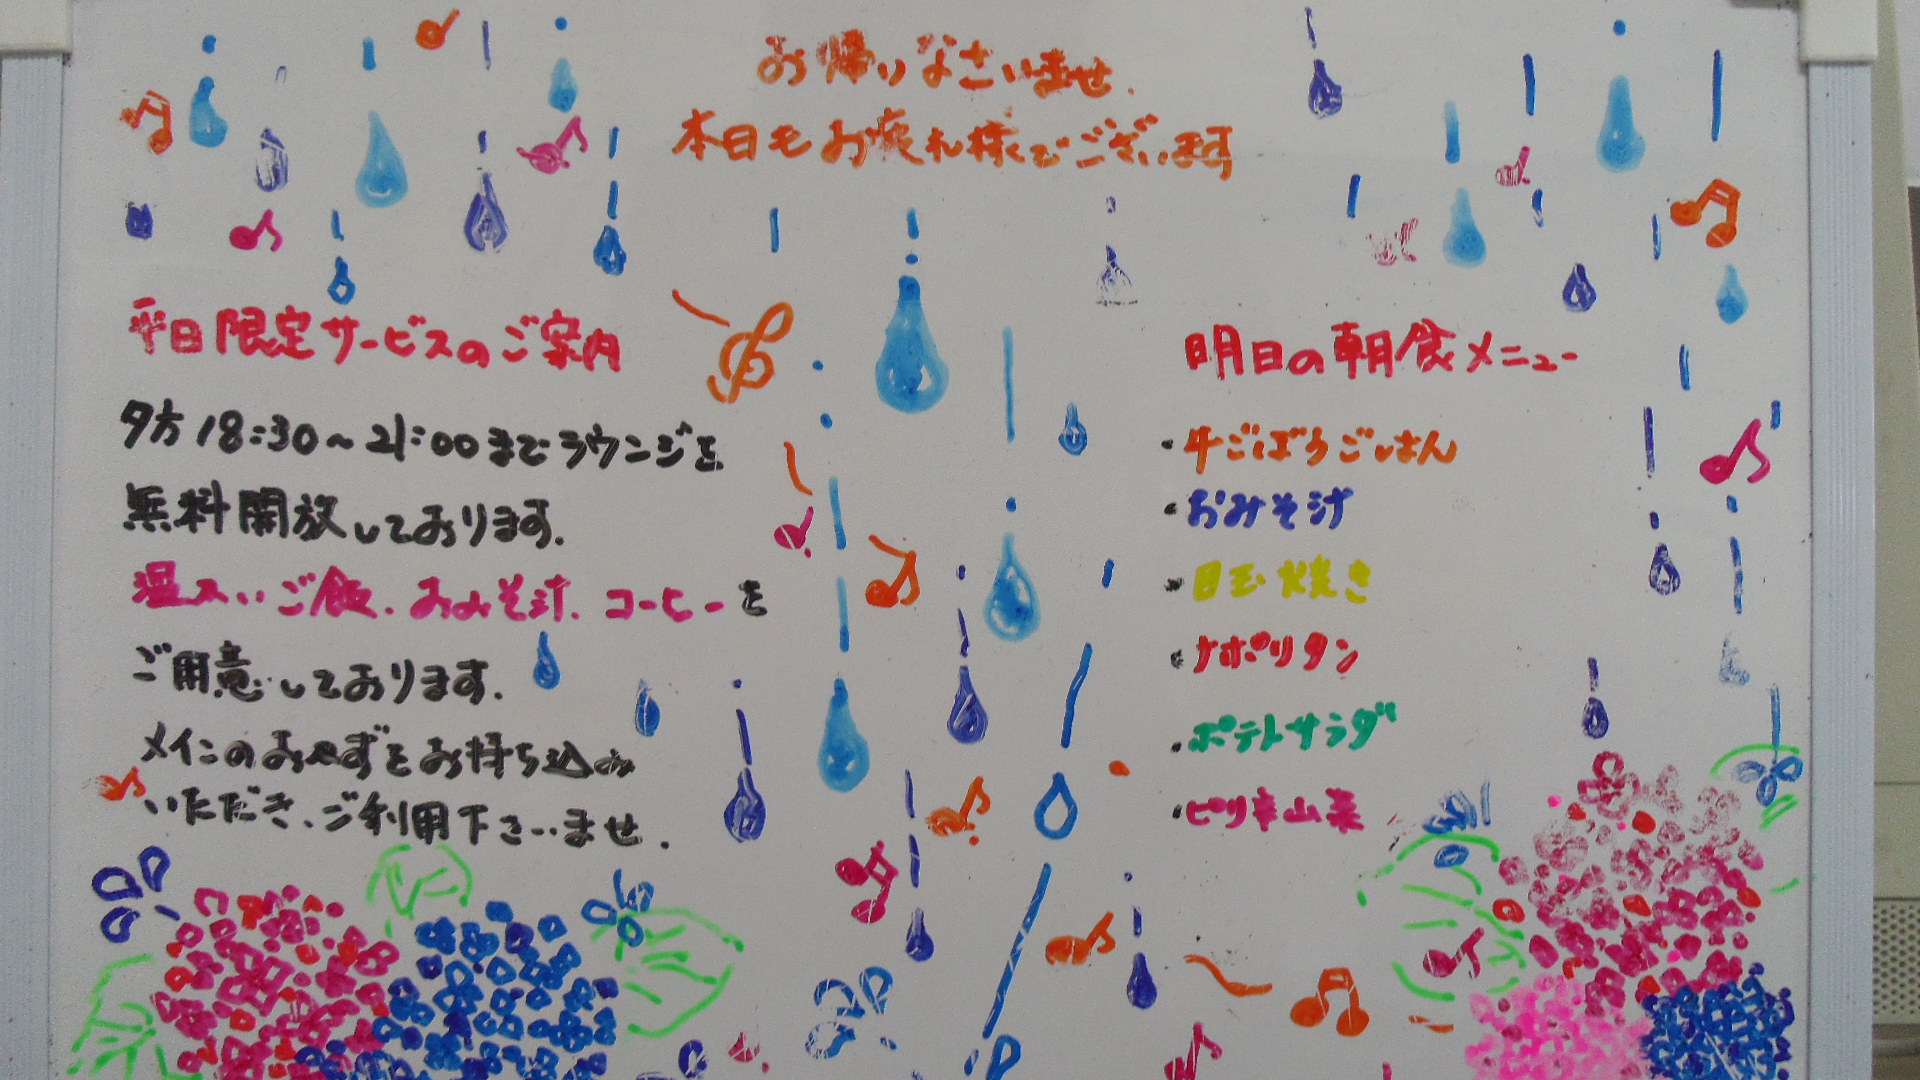 お帰りなさいませ.
本日もお疲れ様でございます
平日限定サービスのご案内
夕方18:30~21:00までラウンジを
無料開放しております.
温かいご飯、おみそ汁、コーヒーを
ご用意しております.
メインのおかずをお持ち込み
いただき、ご利用下さいませ.
明日の朝食メニュー
・牛ごぼうごはん
・おみそ汁
・目玉焼き
・ナポリタン
・ポテトサラダ
・ピリ辛山菜